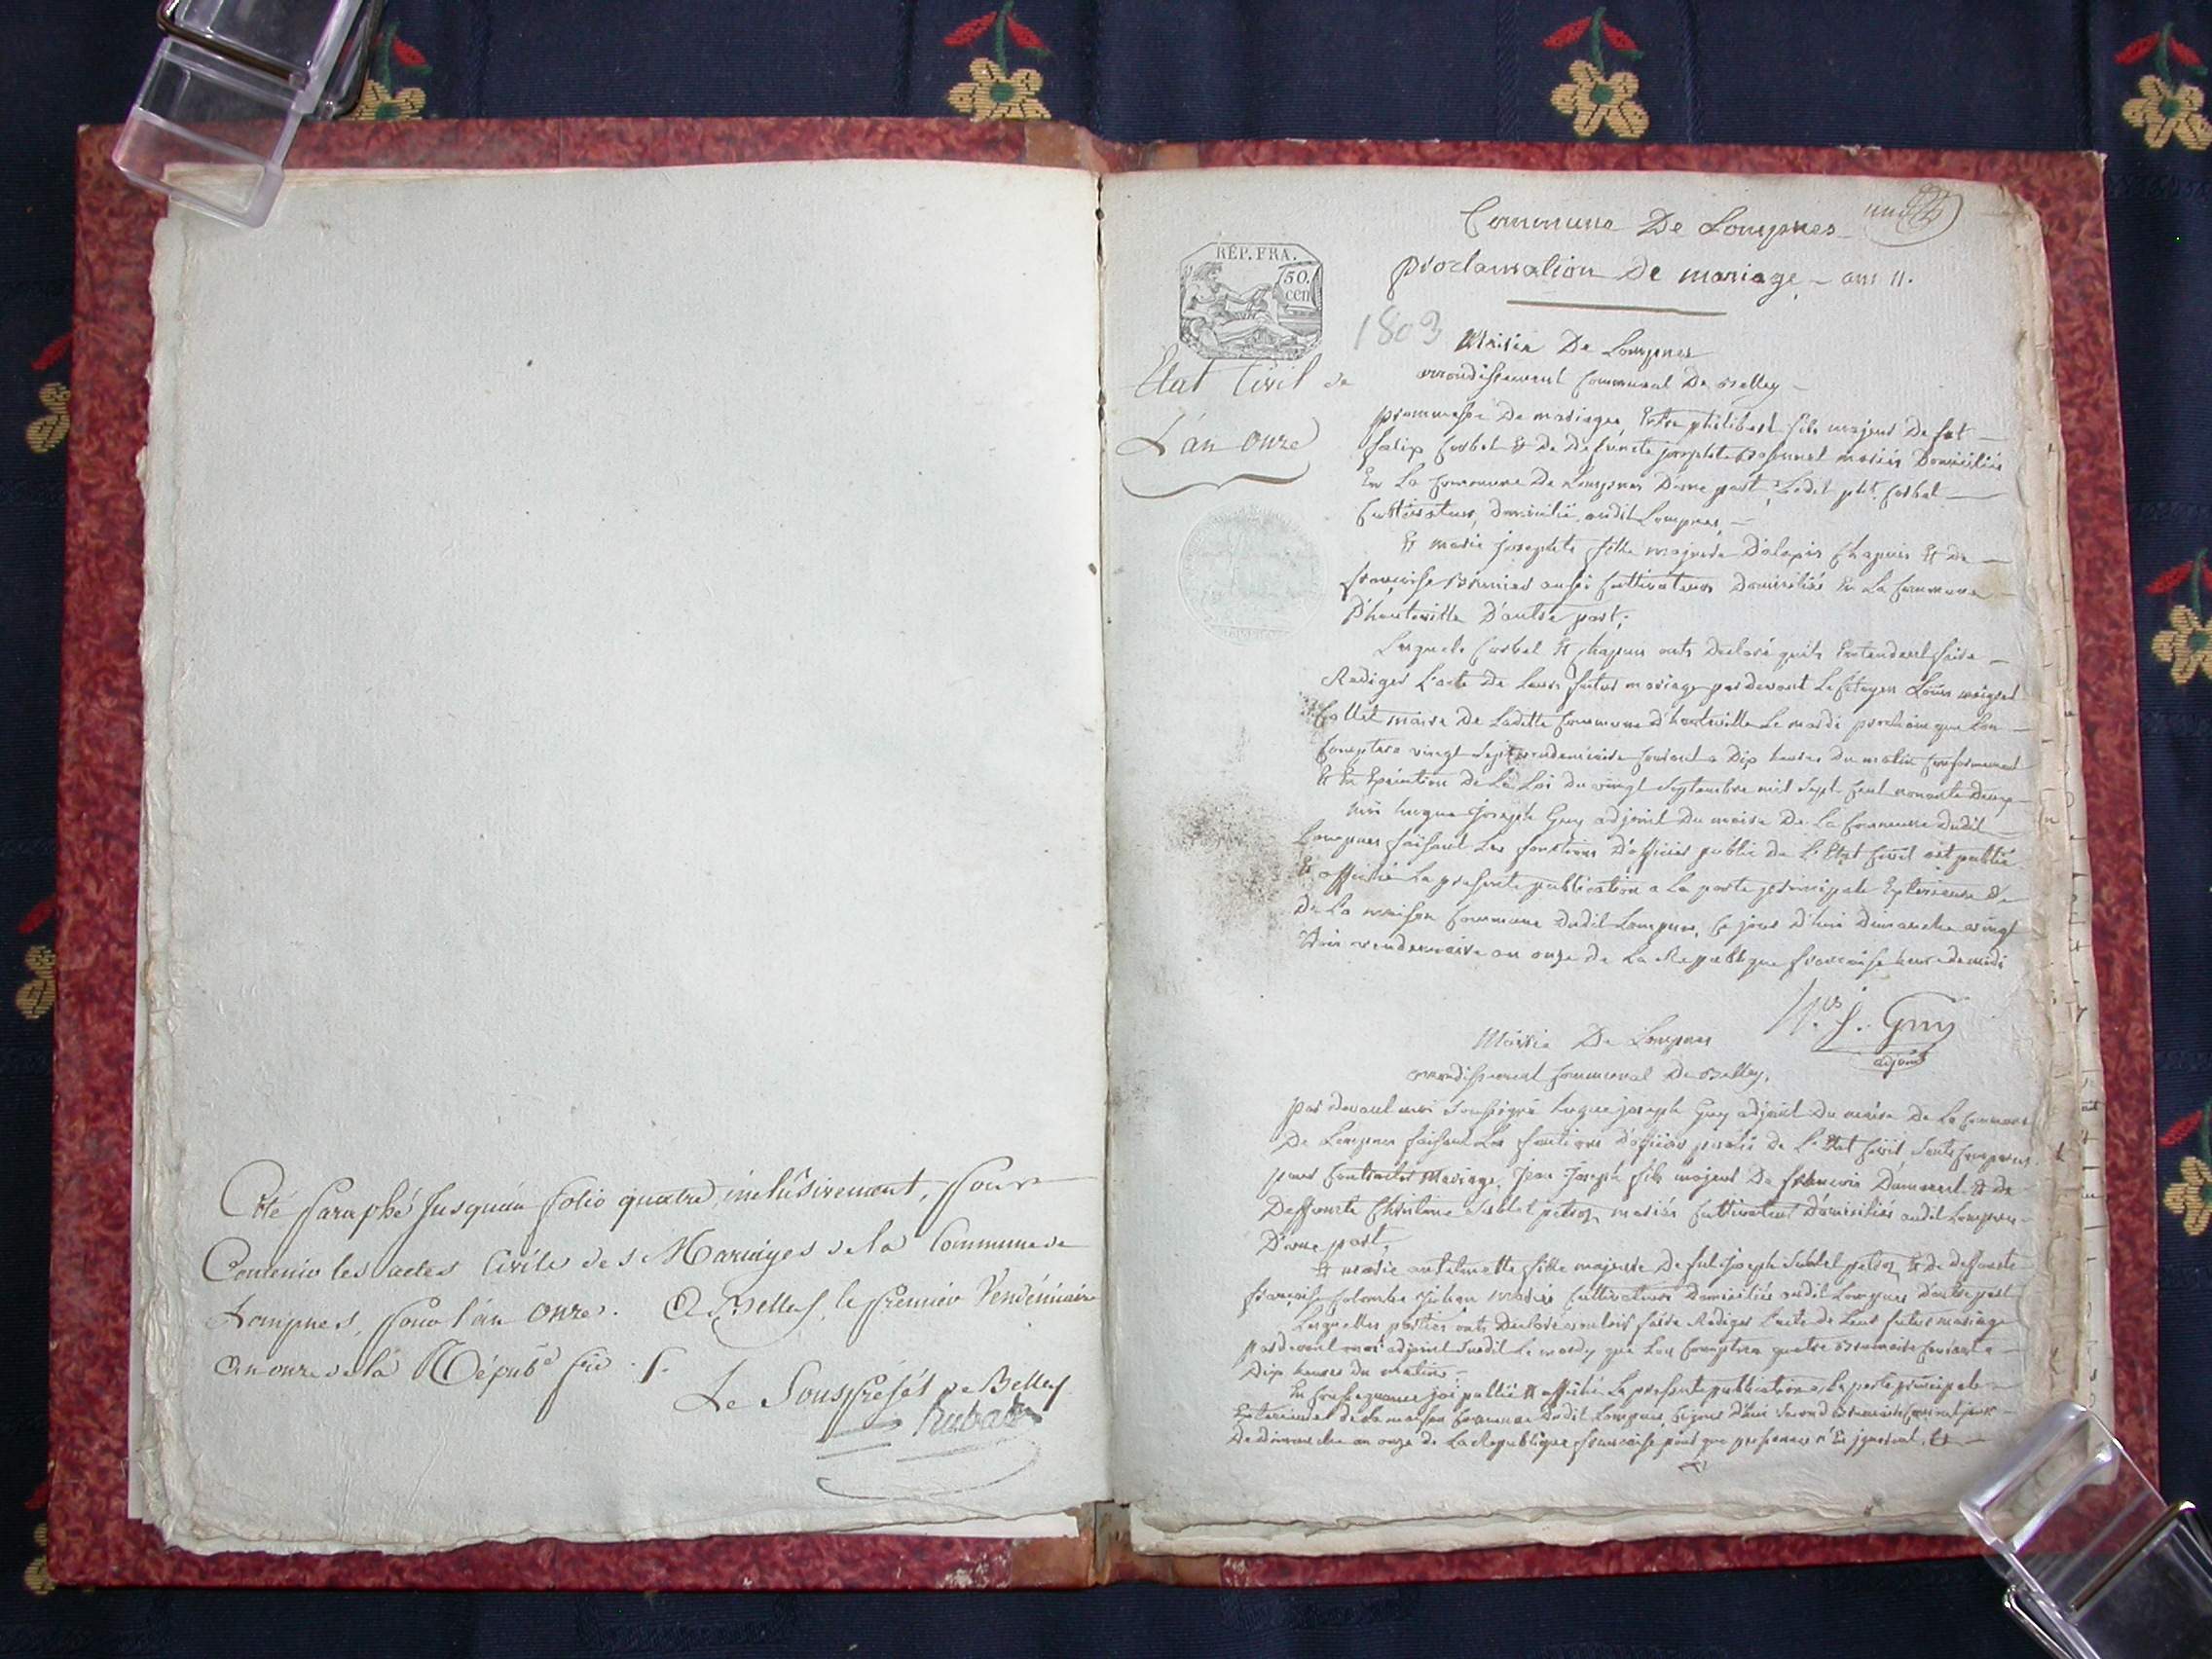 Coté paraphé jusqu'au folio quatre inclusivement, pour
Contenir les actes Civils des Mariages de la Commune de
Lompnes, pour l'an Onze. A Belley, le premier Vendémiaire
an onze de la Répub.
Le Sous Préfét de Belley
Rubat
Commune De Lompnes
proclamation De mariage - an 11.
RÉP. FRA.
50.
cen
1803
Etat Civil de
L'an Onze
Mairie De Lompnes
arrondissement Communal De Belley
promesse De mariage, Entre philibert fils majeur De fut
felix Corbet & De Defuncte josephte mariés Domiciliés
En La Commune De Lompnes D'une part, Ledit Corbet
Cultivateur, domicilié audit Lompnes,
Et marie josephte fille majeure D'alexis Chapuis Et De
françoise aussi Cultivateurs Domiciliés En La Commune
D'hauteville D'autre part;
Lesquels Corbet Et Chapuis ont Déclaré quils Entendent faire
Rediger L'acte De Leur futur mariage par devant Le Citoyen Louis
Collet maire De Ladette Commune d'hauteville Le mardi prochain que Lon
Comptera vingt Sept vendemiaire Courant a Dix heures Du matin Conformement
& En Execution De La Loi Du vingt Septembre mil Sept Cent nonante Deux
moi hugue Joseph Guy adjoint Du maire De La Commune dudit
Lompnes faisant Les fonctions D'officier public de L'Etat Civil ait publié
& affiché La presente publication a La porte principale Exterieure
De La maison Commune Dudit Lompnes, Ce jour D'hui Dimanche vingt
vendemiaire an onze de La Republique françoise heure de midi
h. j. Guy
adjoint
Mairie De Lompnes
arrondissement Communal De Belley,
par devant moi Soussigné hugue joseph Guy adjoint Du maire De La Commune
De Lompnes faisant Les fonctions D'officier public de L'Etat Civil, Sont Comparus
pour Contracter Mariage, Jean Joseph fils majeur De françois Dumarest & de
Deffuncte Christine Sublet petroz mariés Cultivateurs Domiciliés audit Lompnes
D'une part,
Et marie anthelmette fille majeure De fut Joseph Sublet petroz & de deffuncte
françoise mariés Cultivateurs Domiciliés audit Lompnes d'autre part
Lesquelles parties ont Declaré vouloir faire Rediger L'acte de Leur futur mariage
pardevant moi adjoint Susdit Le mardy que Lon Comptera quatre brumaire Courant a
Dix heures du matin.
En Consequence jai publié & affiché La presente publication a La porte principale
Exterieure de la maison Commune Dudit Lompnes, Ce jour D'hui Second brumaire Courant jour
De dimanche an onze de La Republique françoise pour que personne n'En &